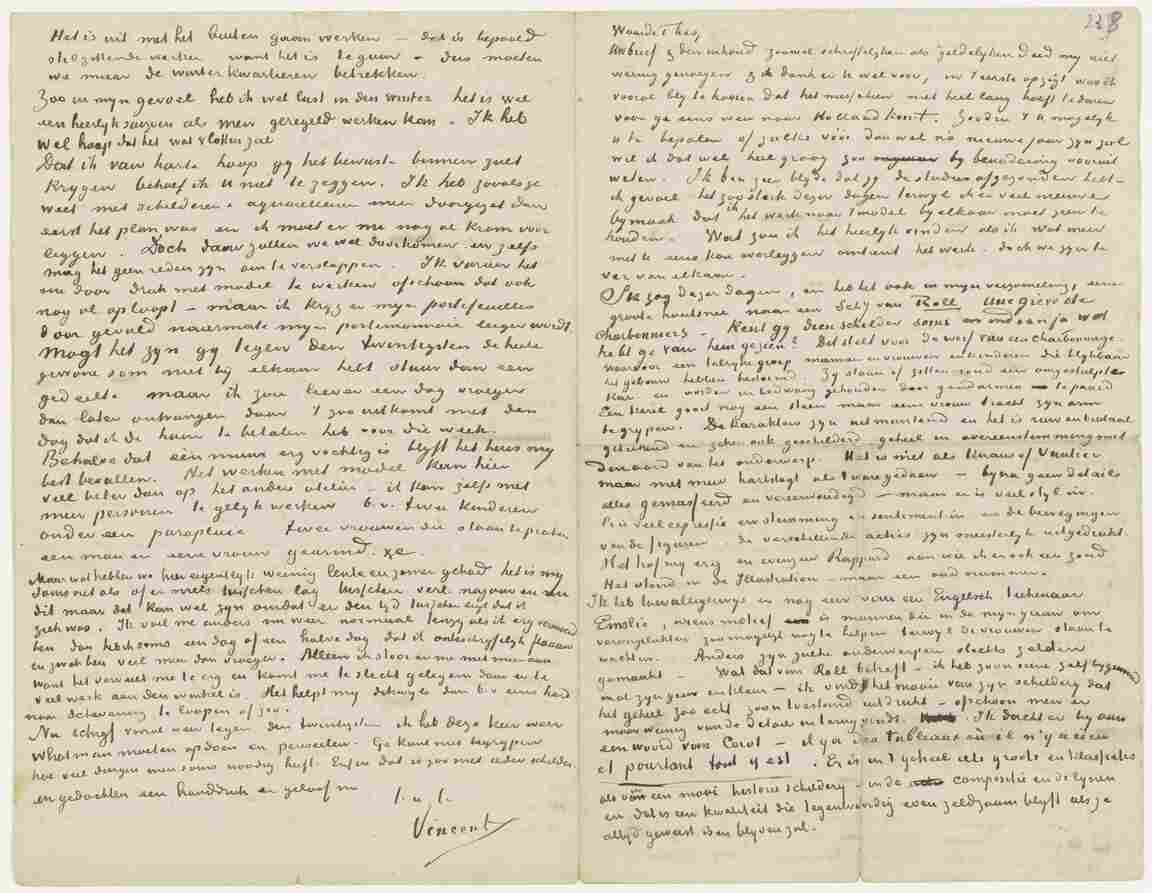 Het is uit met het buiten gaan werken – dat is bepaald
stilzittende werken want het is te guur – dus moeten
we maar de winterkwartieren betrekken.
Zoo in mijn gevoel heb ik wel lust in den winter het is wel
een heerlijk saizoen als men geregeld werken kan. Ik heb
wel hoop dat het wat vlotten zal
Dat ik van harte hoop gij het bewuste binnen zult
krijgen behoef ik U niet te zeggen. Ik heb zooals ge
weet met schilderen & aquarelleeren meer doorgezet dan
eerst het plan was en ik moet er me nog al krom voor
leggen. Doch daar zullen we wel doorkomen en zelfs
mag het geen reden zijn om te verslappen. Ik varieer het
nu door druk met model te werken ofschoon dat ook
nog al oploopt – maar ik krijg er mijn portefeuilles
door gevuld naarmate mijn portemonnaie leeger wordt.
Mogt het zijn gij tegen den twintigsten de heele
gewone som niet bij elkaar hebt stuur dan een
gedeelte maar ik zou liever een dag vroeger
dan later ontvangen daar 't zoo uitkomt met den
dag dat ik de huur te betalen heb voor die week.
Behalve dat een muur erg vochtig is blijft het huis mij
best bevallen. Het werken met model kan hier
veel beter dan op het andere atelier – ik kan zelfs met
meer personen te gelijk werken b.v. twee kinderen
onder een parapluie twee vrouwen die staan te praten
een man en eene vrouw gearmd. &c.
Maar wat hebben we hier eigentlijk weinig lente en zomer gehad het is mij
soms net als of er niets tusschen lag tusschen verl. najaar en
dit maar dat kan wel zijn omdat er den tijd tusschen ligt dat ik
ziek was. Ik voel me anders nu weer normaal tenzij als ik erg vermoeid
ben dan heb ik soms een dag of een halve dag dat ik onbeschrijfelijk flaauw
en zwak ben veel meer dan vroeger. Alleen ik stoor er me niet meer aan
want het verveelt me te erg en komt me te slecht gelegen daar er te
veel werk aan den winkel is. Het helpt mij dikwijls dan b.v eens hard
naar Scheveningen te loopen of zoo.
Nu schrijf vooral weer tegen den twintigsten ik heb deze keer weer
Whatman moeten opdoen en penseelen. Ge kunt niet begrijpen
hoe veel dingen men soms noodig heeft. Enfin dat is zoo met ieder schilder.
en gedachten een handdruk en geloof me
t. à t.
Vincent
228
Waarde Theo,
Uw brief & den inhoud zoowel schriftelijken als geldelijken deed mij niet
weinig genoegen & ik dank er U wel voor, in 't eerste opzigt word ik
vooral blij te hooren dat het misschien niet heel lang hoeft te duren
voor ge eens weer naar Holland komt. Zoodra 't U mogelijk
is te bepalen of zulks vóór dan wel na nieuwejaar zijn zal
wil ik dat wel heel graag zoo bij benadering vooruit
weten. Ik ben zeer blijde dat gij de studies afgezonden hebt –
ik gevoel het zoo sterk dezer dagen terwijl ik er veel nieuwe
bijmaak dat ik het werk naar 't model bij elkaar moet zien te
houden. Wat zou ik het heerlijk vinden als ik wat meer
met U eens kon overleggen omtrent het werk – doch we zijn te
ver van elkaar.
Ik zag dezer dagen, en heb het ook in mijn verzameling, eene
groote houtsnee naar een Schij van Roll Une grève de
charbonniers – Kent gij dien schilder soms en indien ja wat
hebt ge van hem gezien? Dit stelt voor de werf van een charbonnage
waarvoor een talrijke groep mannen en vrouwen en kinderen die blijkbaar
het gebouw hebben bestormd. Zij staan of zitten rond een omgestulpte
kar en worden in bedwang gehouden door gendarmen te paard
Een kerel gooit nog een steen maar eene vrouw tracht zijn arm
te grijpen. De karakters zijn uitmuntend en het is ruw en brutaal
geteekend en zeker ook geschilderd geheel in overeenstemming met
den aard van het onderwerp. Het is niet als Knaus of Vautier
maar met meer hartstogt als 't ware gedaan – bijna geen details
alles gemasseerd en vereenvoudigd – maar er is veel styl in.
Er is veel expressie en stemming en sentiment in en de bewegingen
van de figuren – de verschillende acties zijn meesterlijk uitgedrukt.
Het trof mij erg en evenzeer Rappard aan wie ik er ook een zond
Het stond in de Illustration – maar een oud nummer.
Ik heb toevalligerwijs er nog een van een Engelsch teekenaar
Emslie, wiens motief is mannen die in de mijn gaan om
verongelukten zoo mogelijk nog te helpen terwijl de vrouwen staan te
wachten. Anders zijn zulke onderwerpen slechts zelden
gemaakt – Wat dat van Roll betreft – ik heb zoon scene zelf bijgewoond
met zijn geur en kleur – ik vind het mooie van zijn schilderij dat
het geheel zoo echt zoon toestand uitdrukt – ofschoon men er
maar weinig van de details in terug vindt. Ik dacht er bij aan
een woord van Corot – il y a des tableaux où il n'y a rien
et pourtant tout y est. Er is in 't geheel iets groots en klassieks
als van een mooi historieschilderij – in de compositie en de lijnen
en dat is een kwaliteit die tegenwoordig even zeldzaam blijft als ze
altijd geweest is en blijven zal.